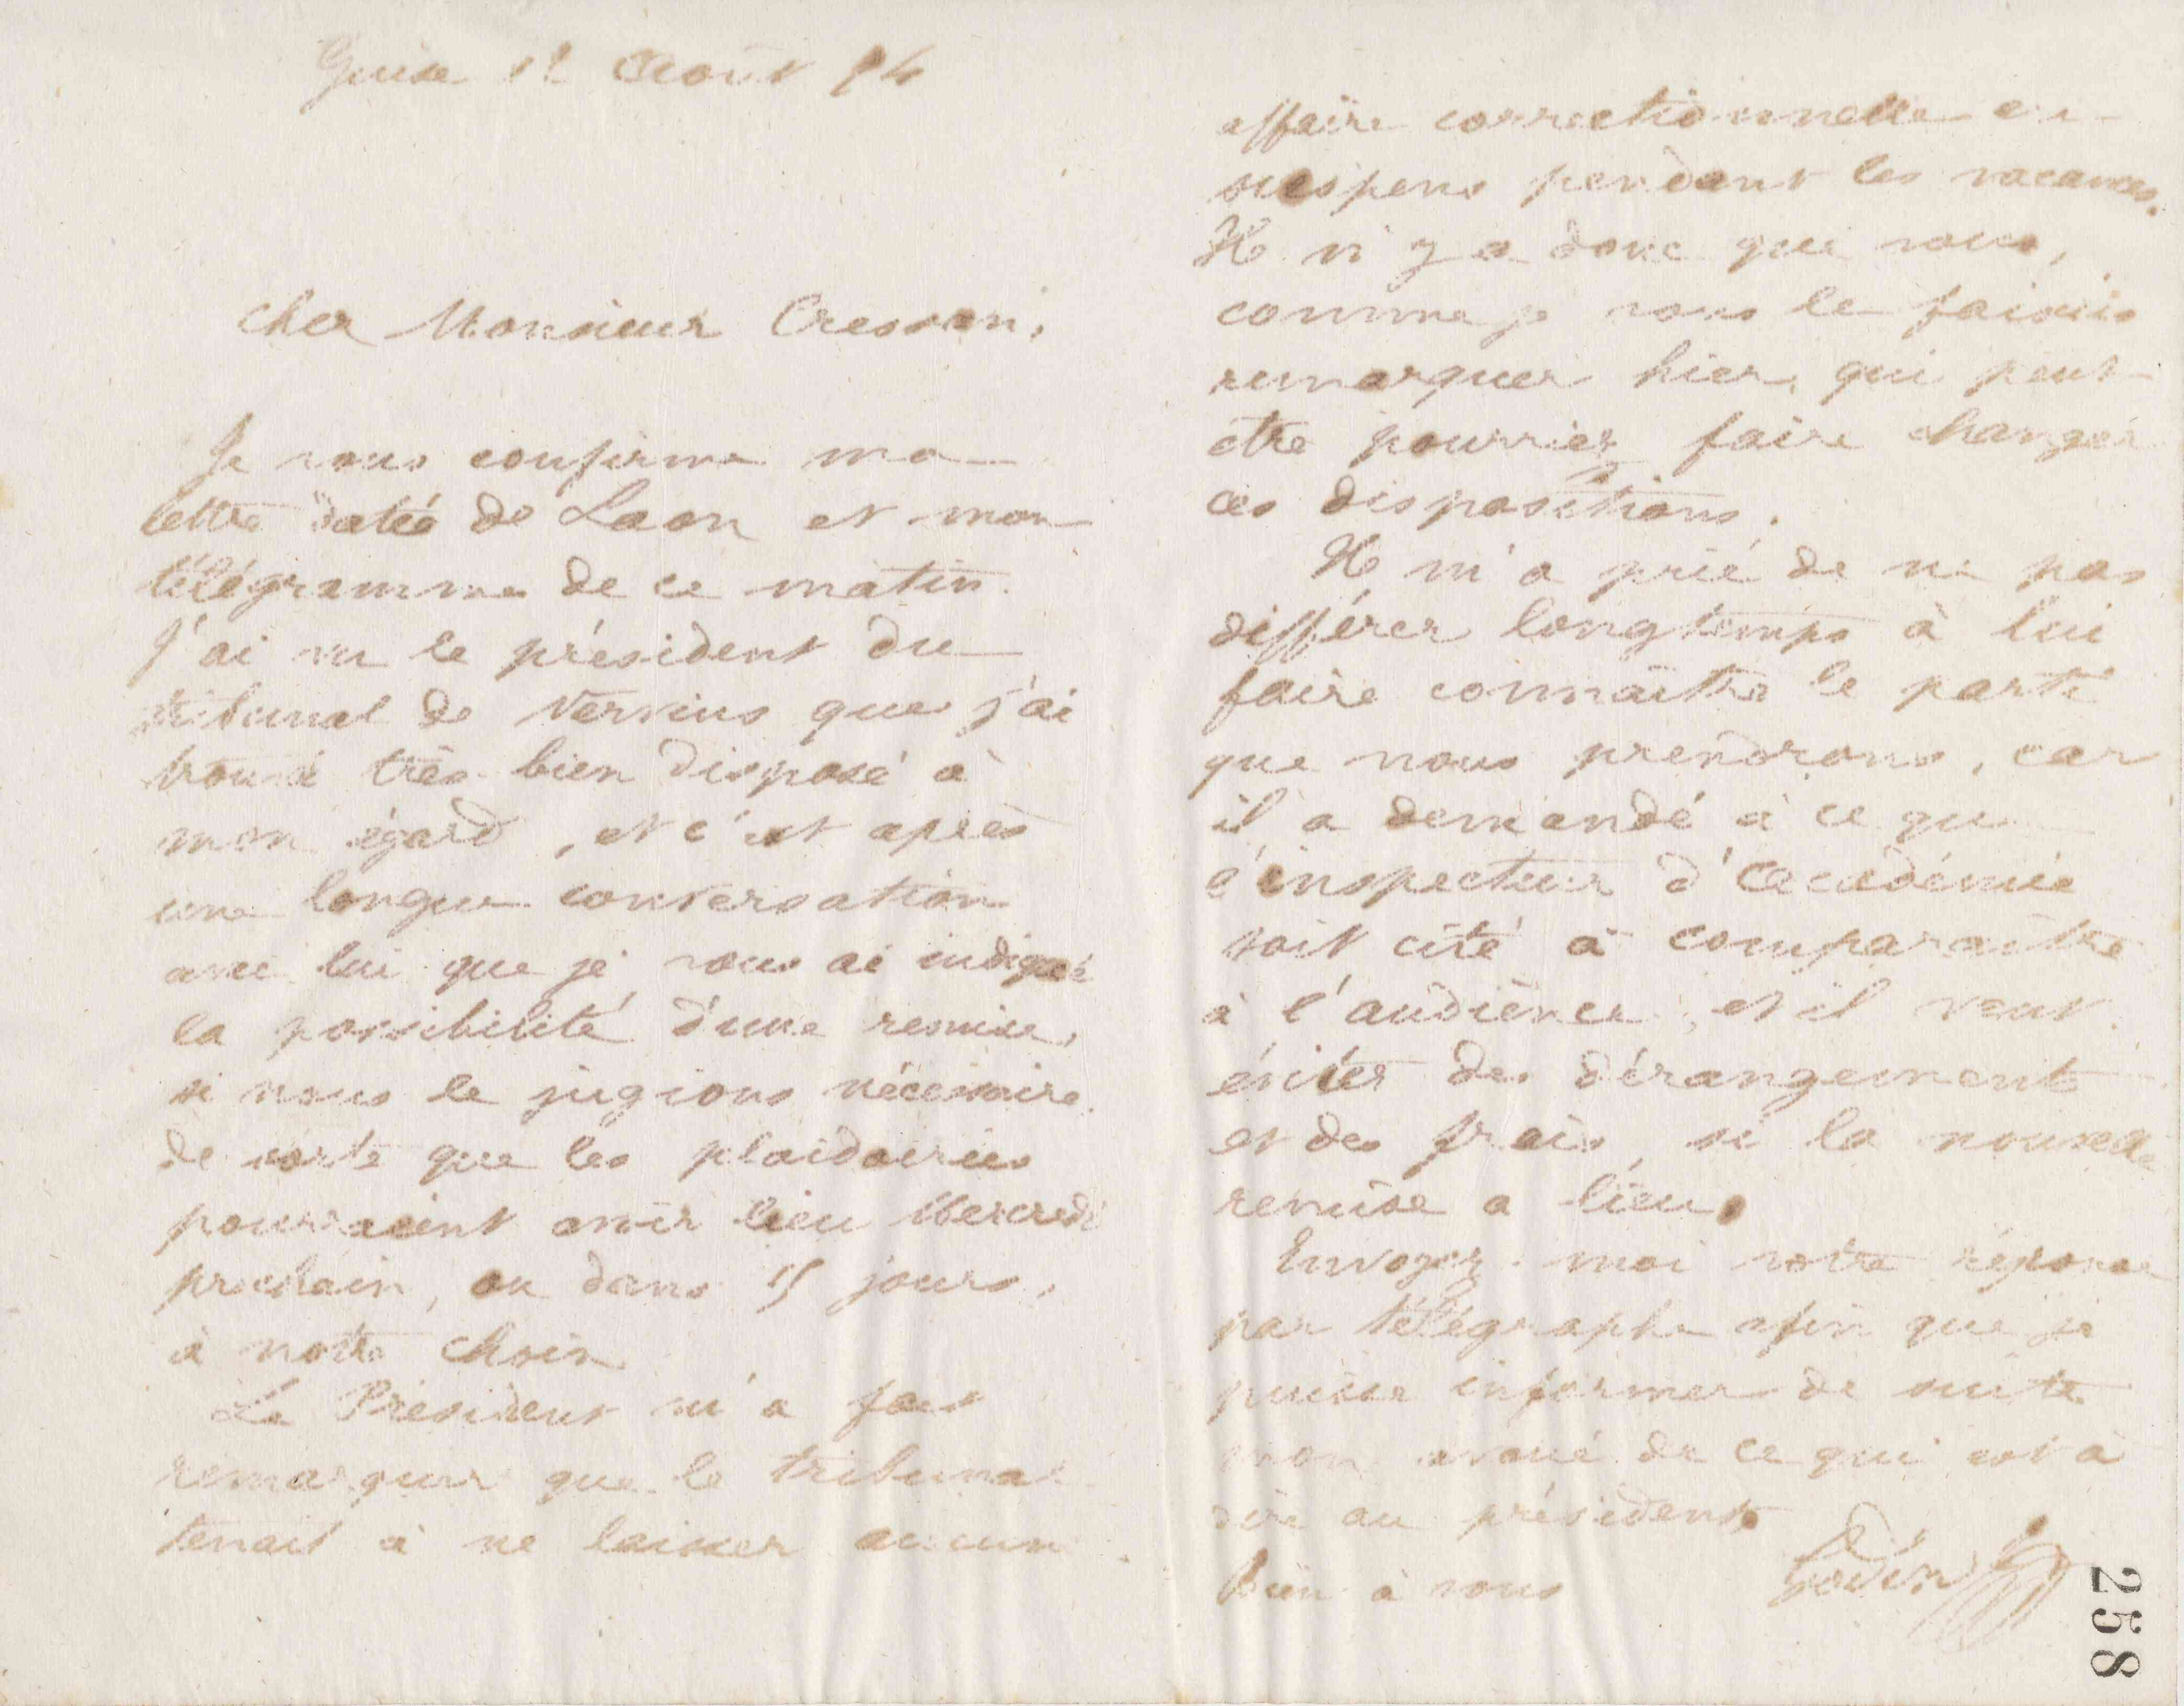 Guise 12 Août 74
Cher Monsieur Cresson,
Je vous confirme ma
lettre datée de Laon et mon
télégramme de ce matin.
J'ai vu le président du
tribunal de Vervins que j'ai
trouvé très bien disposé à
mon égard, et c'est après
une longue conversation
avec lui que je vous ai indiqué
la possibilité d'une remise,
si nous le jugions nécessaire
de sorte que les plaidoiries
pourraient avoir lieu Mercredi
prochain, ou dans 15 jours,
à notre choix
Le Président m'a fait
remarquer que le tribunal
tenait à ne laisser aucun
affaire correctionnelle en
suspens pendant les vacances.
Il n'y a donc que vous,
comme je vous le faisais
remarquer hier, qui peut
être pourriez faire changer
ces dispositions.
Il m'a prié de ne pas
différer longtemps à lui
faire connaître le parti
que nous prendrons, car
il a demandé à ce que
l'inspecteur d'Académie
soit cité à comparaître
à l'audience, et il veut
éviter des dérangements
et des frais, si la nouvelle
remise a lieu.
Envoyez-moi votre réponse
par télégraphe afin que je
puisse informer de suite
mon avoué de ce qui est à
dire au président.
Bien à vous Godin
258